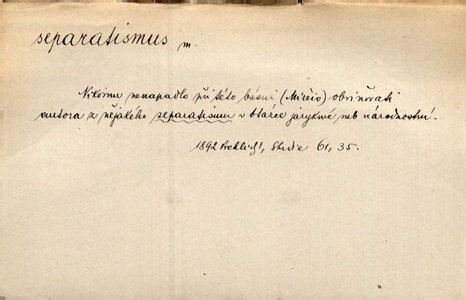 separatismus m.
Nikomu nenapadlo při této básni (Mirèio) obviňovati
autora z nějakého separatismu v otázce jazykové neb národnostní.
1892 Vrchlický, Studie 61, 35.